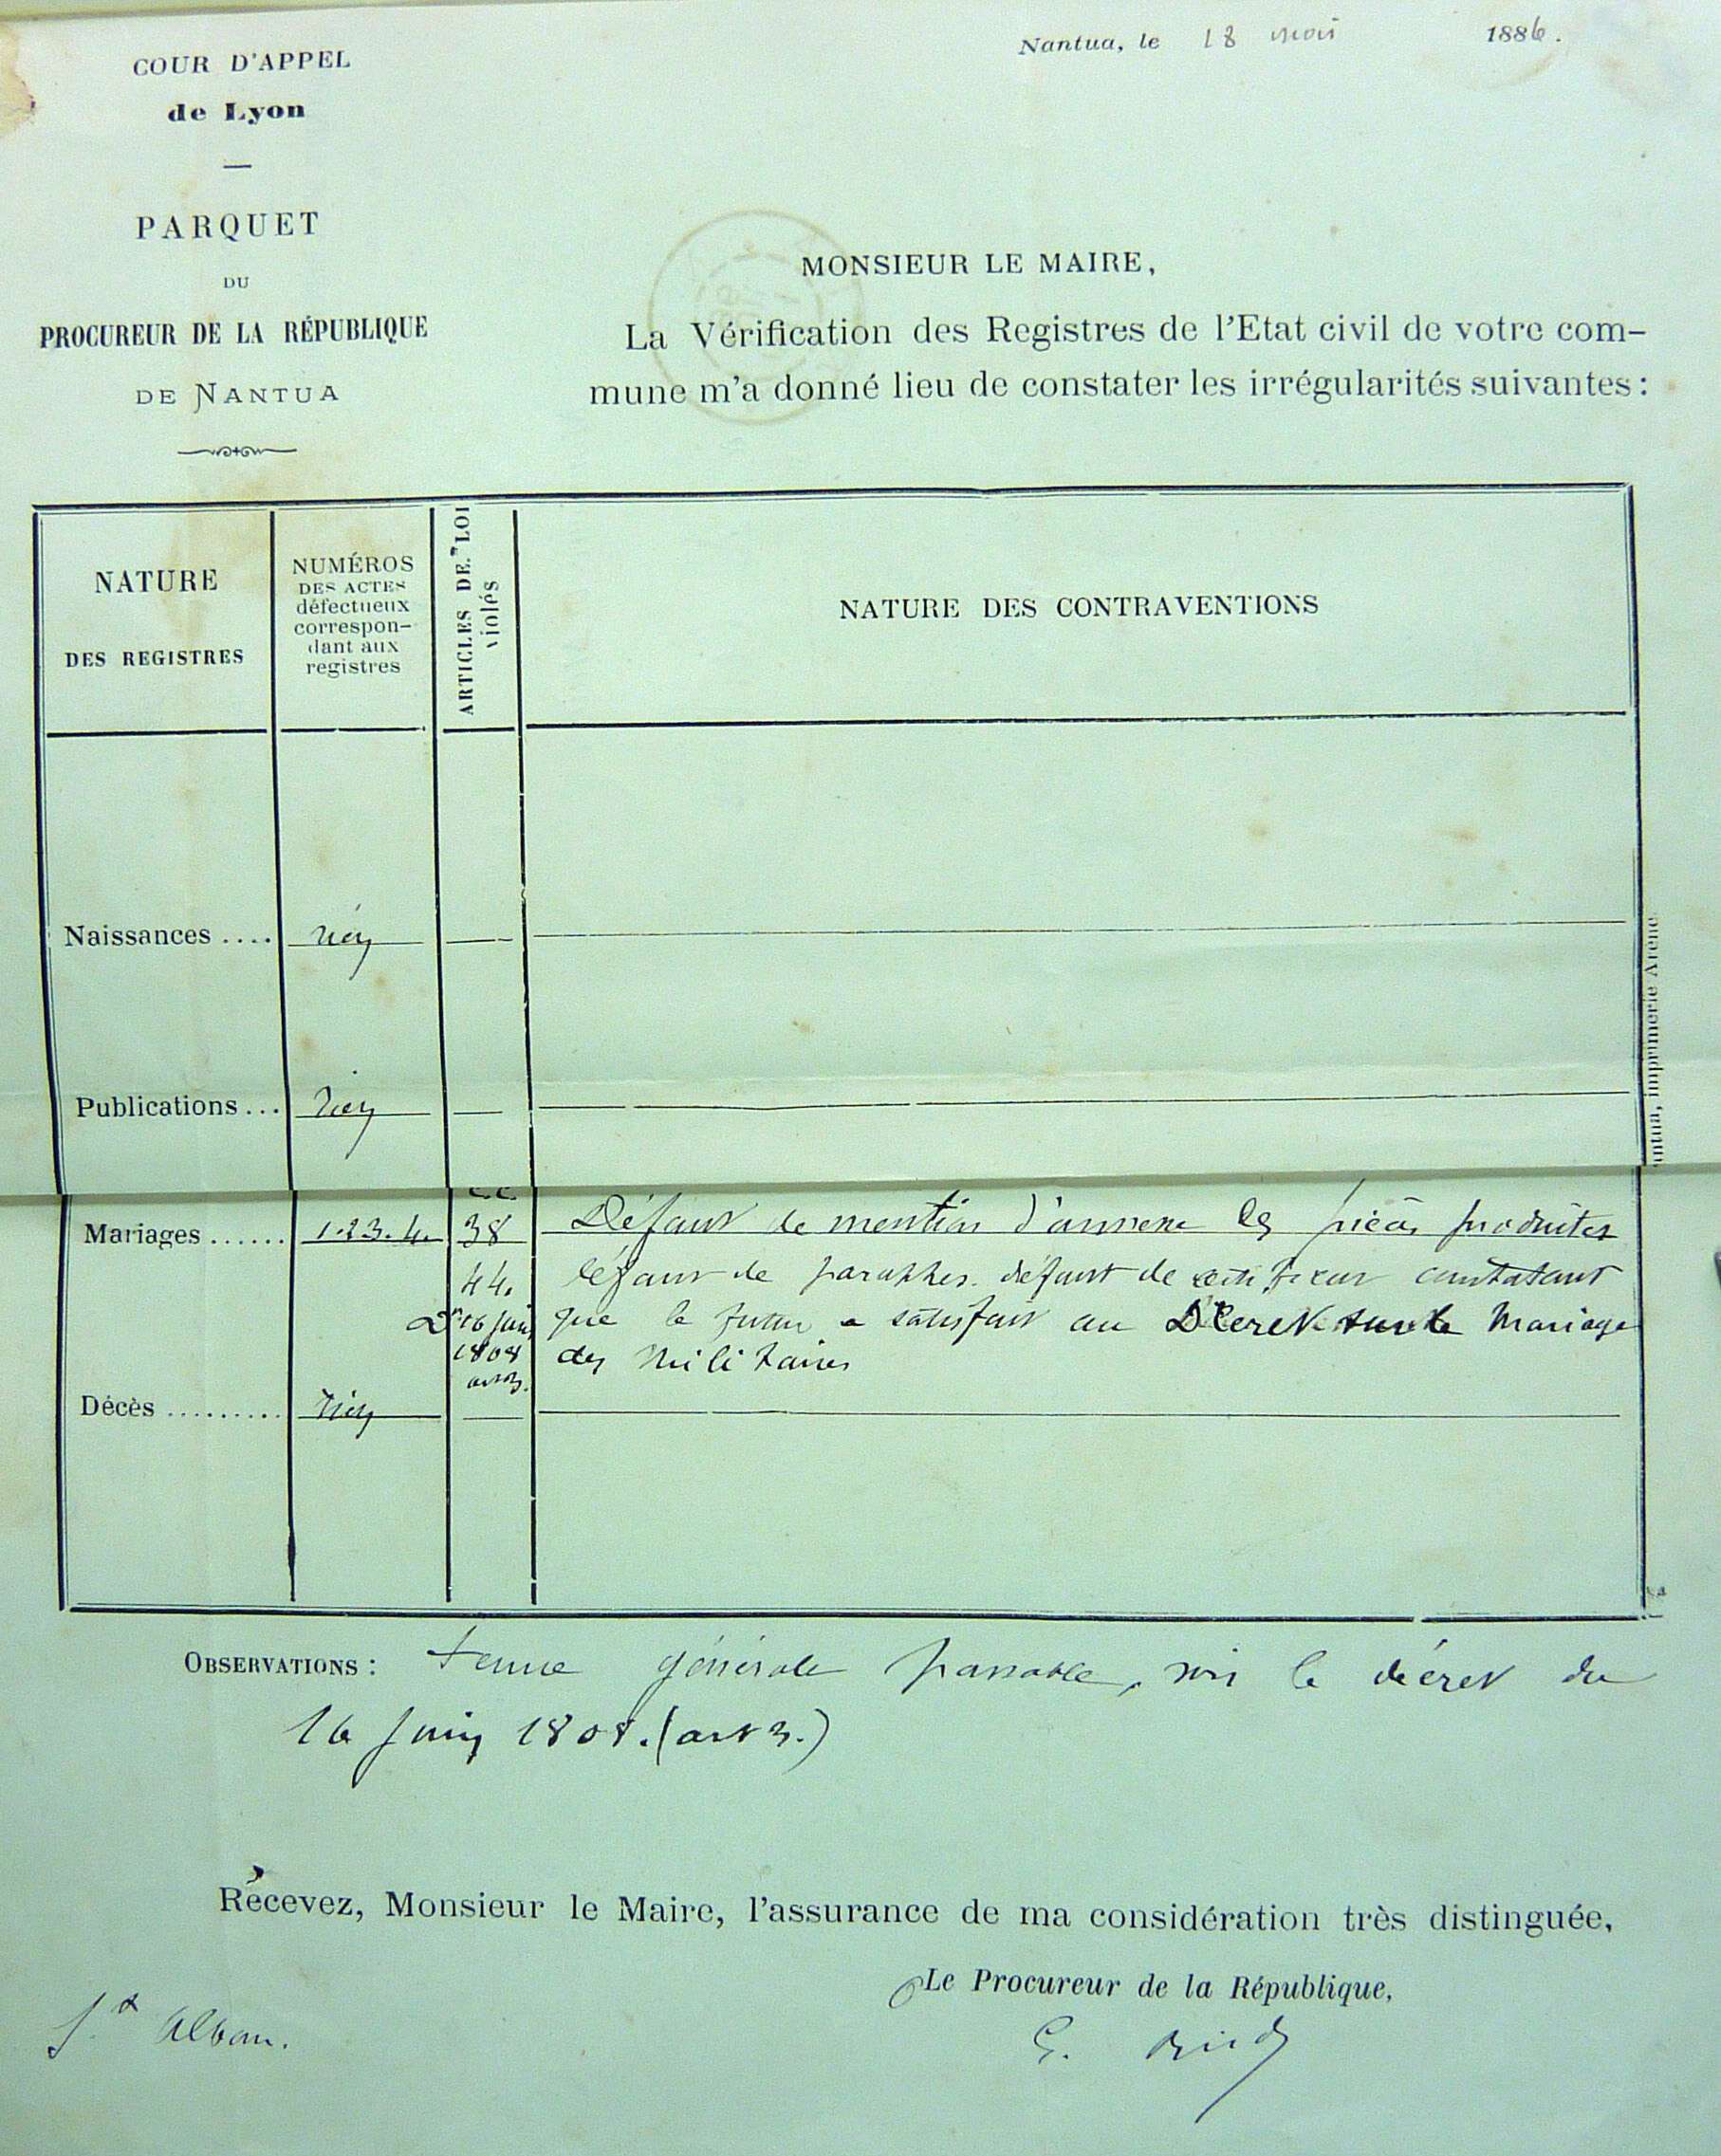 Nantua, le 18 mai 1886.
COUR D'APPEL
de Lyon
PARQUET
DU
PROCUREUR DE LA RÉPUBLIQUE
DE NANTUA
MONSIEUR LE MAIRE,
La Vérification des Registres de l'Etat civil de votre com-
mune m'a donné lieu de constater les irrégularités suivantes :
NATURE
DES REGISTRES
NUMÉROS
DES ACTES
défectueux
correspon-
dant aux
registres
ARTICLES DE LOI
violés
NATURE DES CONTRAVENTIONS
Naissances .... rien
Publications ... rien
Mariages ...... 1.2.3.4. 38 Défaut de mention d'annexe des pièces produites
44. défaut de paraphes. défaut de certificat constatant
Dt 16 juin que le futur a satisfait au Décret sur le mariage
1808 des militaires
art 3.
Décès ......... rien
ntua, imprimerie Arène
OBSERVATIONS : tenue générale passable, voir le décret du
16 juin 1808. (art 3.)
Récevez, Monsieur le Maire, l'assurance de ma considération très distinguée,
Le Procureur de la République,
St Alban.
G.